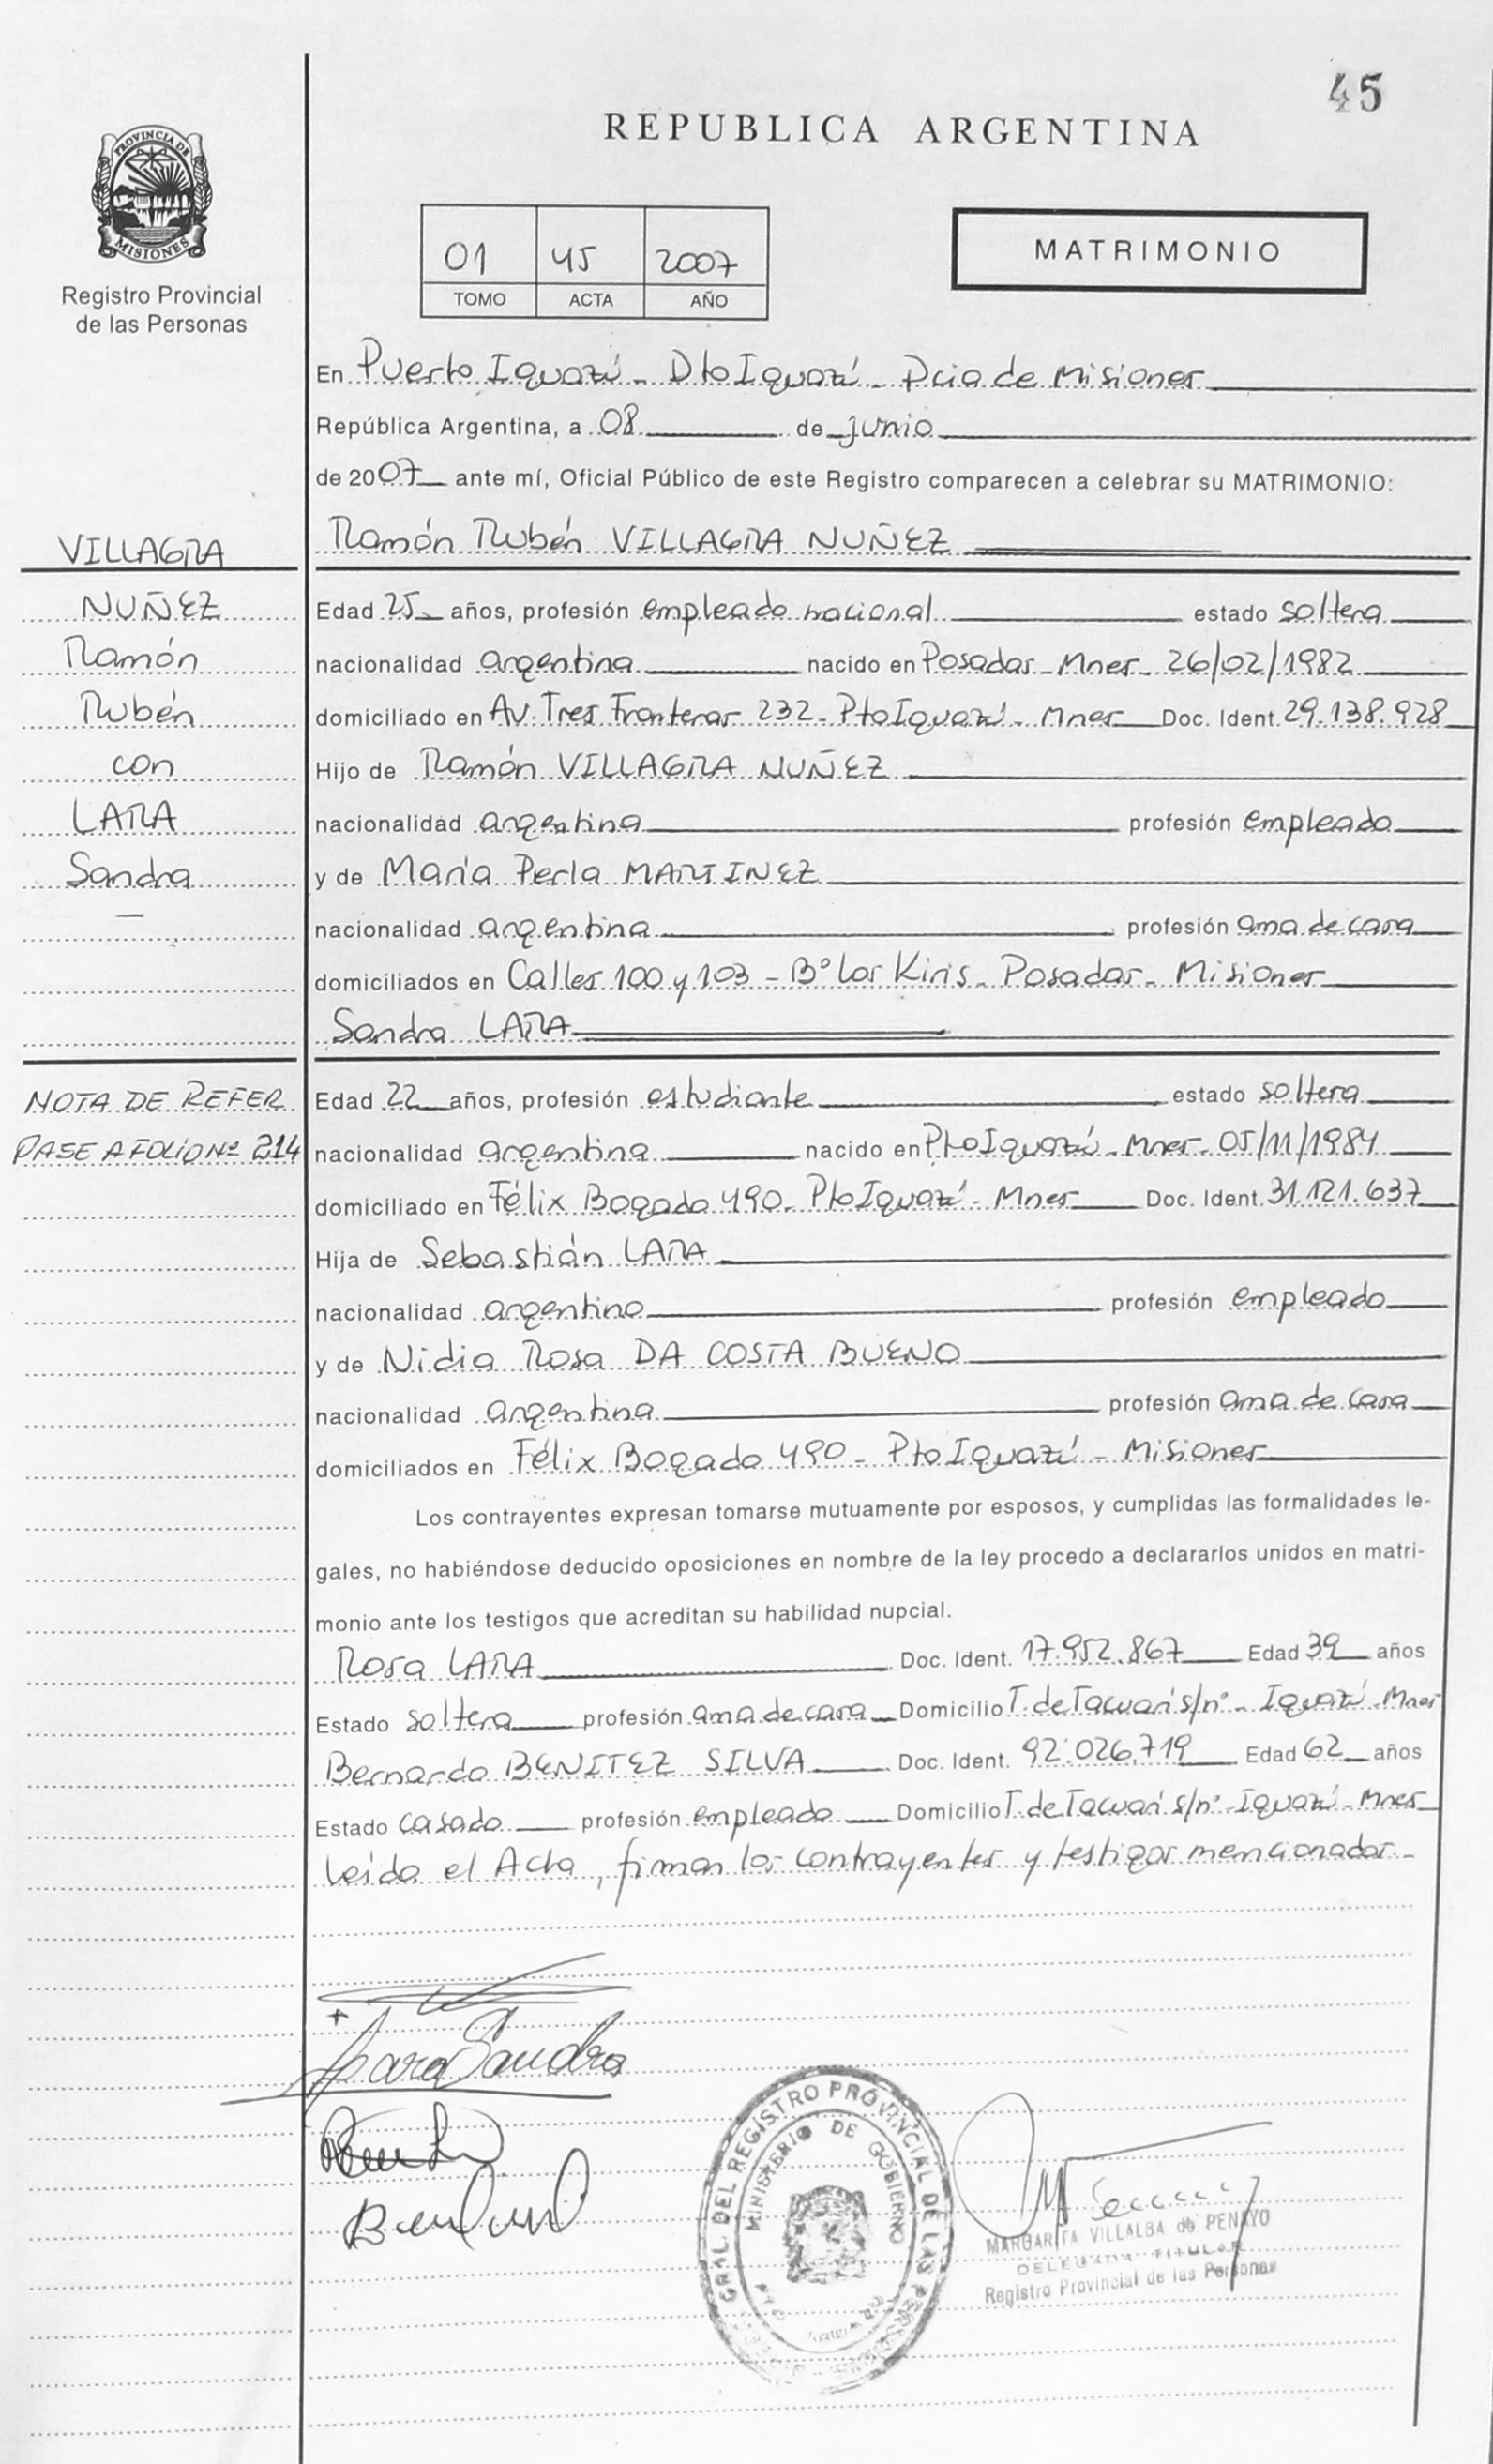 45
REPUBLICA ARGENTINA
PROVINCIA DE
MISIONES
Registro Provincial
de las Personas
01 45 2007
TOMO ACTA AÑO
MATRIMONIO
En Puerto Iguazú - Dto Iguazú - Pcia de Misiones
República Argentina, a 08 de junio
de 2007 ante mí, Oficial Público de este Registro comparecen a celebrar su MATRIMONIO:
Ramón Rubén VILLAGRA NUÑEZ
VILLAGRA
NUÑEZ
Ramón
Rubén
con
LARA
Sandra
Edad 25 años, profesión empleado nacional estado soltera
nacionalidad argentina nacido en Posadas - Mnes - 26/02/1982
domiciliado en Av. Tres Fronteras 232 - Pto Iguazú - Mnes Doc. Ident. 29.138.928
Hijo de Ramón VILLAGRA NUÑEZ
nacionalidad argentina profesión empleado
y de María Perla MARTINEZ
nacionalidad argentina profesión ama de casa
domiciliados en Calles 100 y 103 - Bº los Kiris - Posadas - Misiones
Sandra LARA
NOTA DE REFER
PASE A FOLIO Nº 214
Edad 22 años, profesión estudiante estado soltera
nacionalidad argentina nacido en Pto Iguazú - Mnes - 05/11/1984
domiciliado en Félix Bogado 490 - Pto Iguazú - Mnes Doc. Ident. 31.121.637
Hija de Sebastián LARA
nacionalidad argentina profesión empleado
y de Nidia Rosa DA COSTA BUENO
nacionalidad argentina profesión ama de casa
domiciliados en Félix Bogado 490 - Pto Iguazú - Misiones
Los contrayentes expresan tomarse mutuamente por esposos, y cumplidas las formalidades le-
gales, no habiéndose deducido oposiciones en nombre de la ley procedo a declararlos unidos en matri-
monio ante los testigos que acreditan su habilidad nupcial.
Rosa LARA Doc. Ident. 17.952.867 Edad 39 años
Estado soltera profesión ama de casa Domicilio T. de Tacuarí s/nº - Iguazú - Mnes
Bernardo BENITEZ SILVA Doc. Ident. 92.026.719 Edad 62 años
Estado casado profesión empleado Domicilio T. de Tacuarí s/nº - Iguazú - Mnes
Leída el Acta, firman los contrayentes y testigos mencionados -
Lara Sandra
GRAL. DEL REGISTRO PROVINCIAL DE LAS
MINISTERIO DE GOBIERNO
MARGARITA VILLALBA de PENAYO
DELEGADA TITULAR
Registro Provincial de las Personas